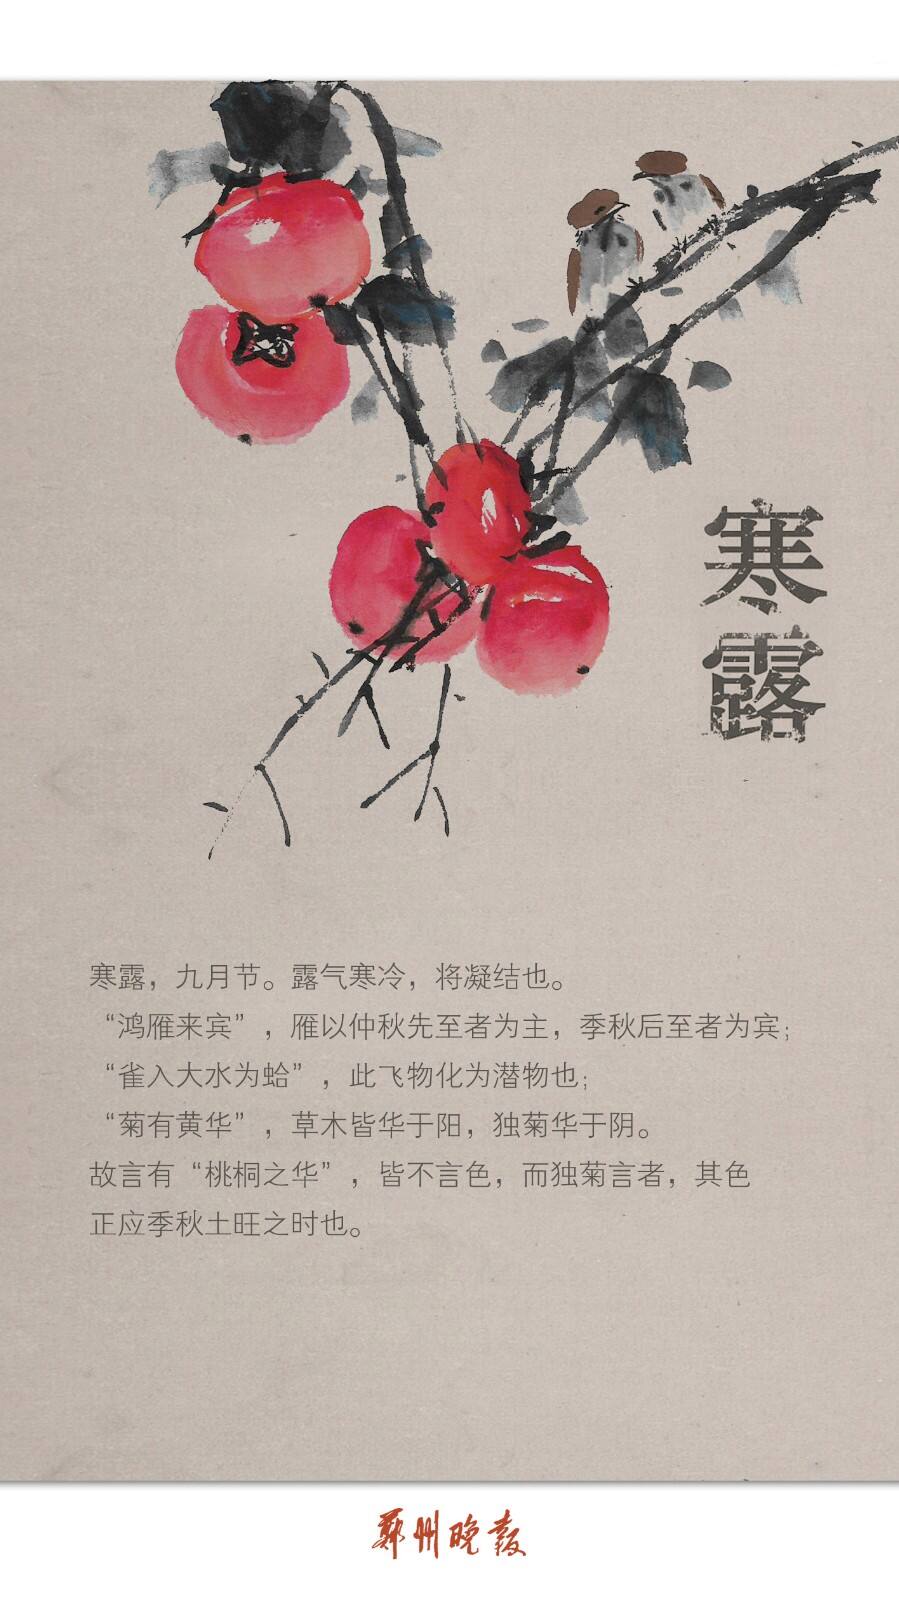 寒露
寒露，九月节。露气寒冷，将凝结也。
“鸿雁来宾”，雁以仲秋先至者为主，季秋后至者为宾；
“雀入大水为蛤”，此飞物化为潜物也；
“菊有黄华”，草木皆华于阳，独菊华于阴。
故言有“桃桐之华”，皆不言色，而独菊言者，其色
正应季秋土旺之时也。
郑州晚报